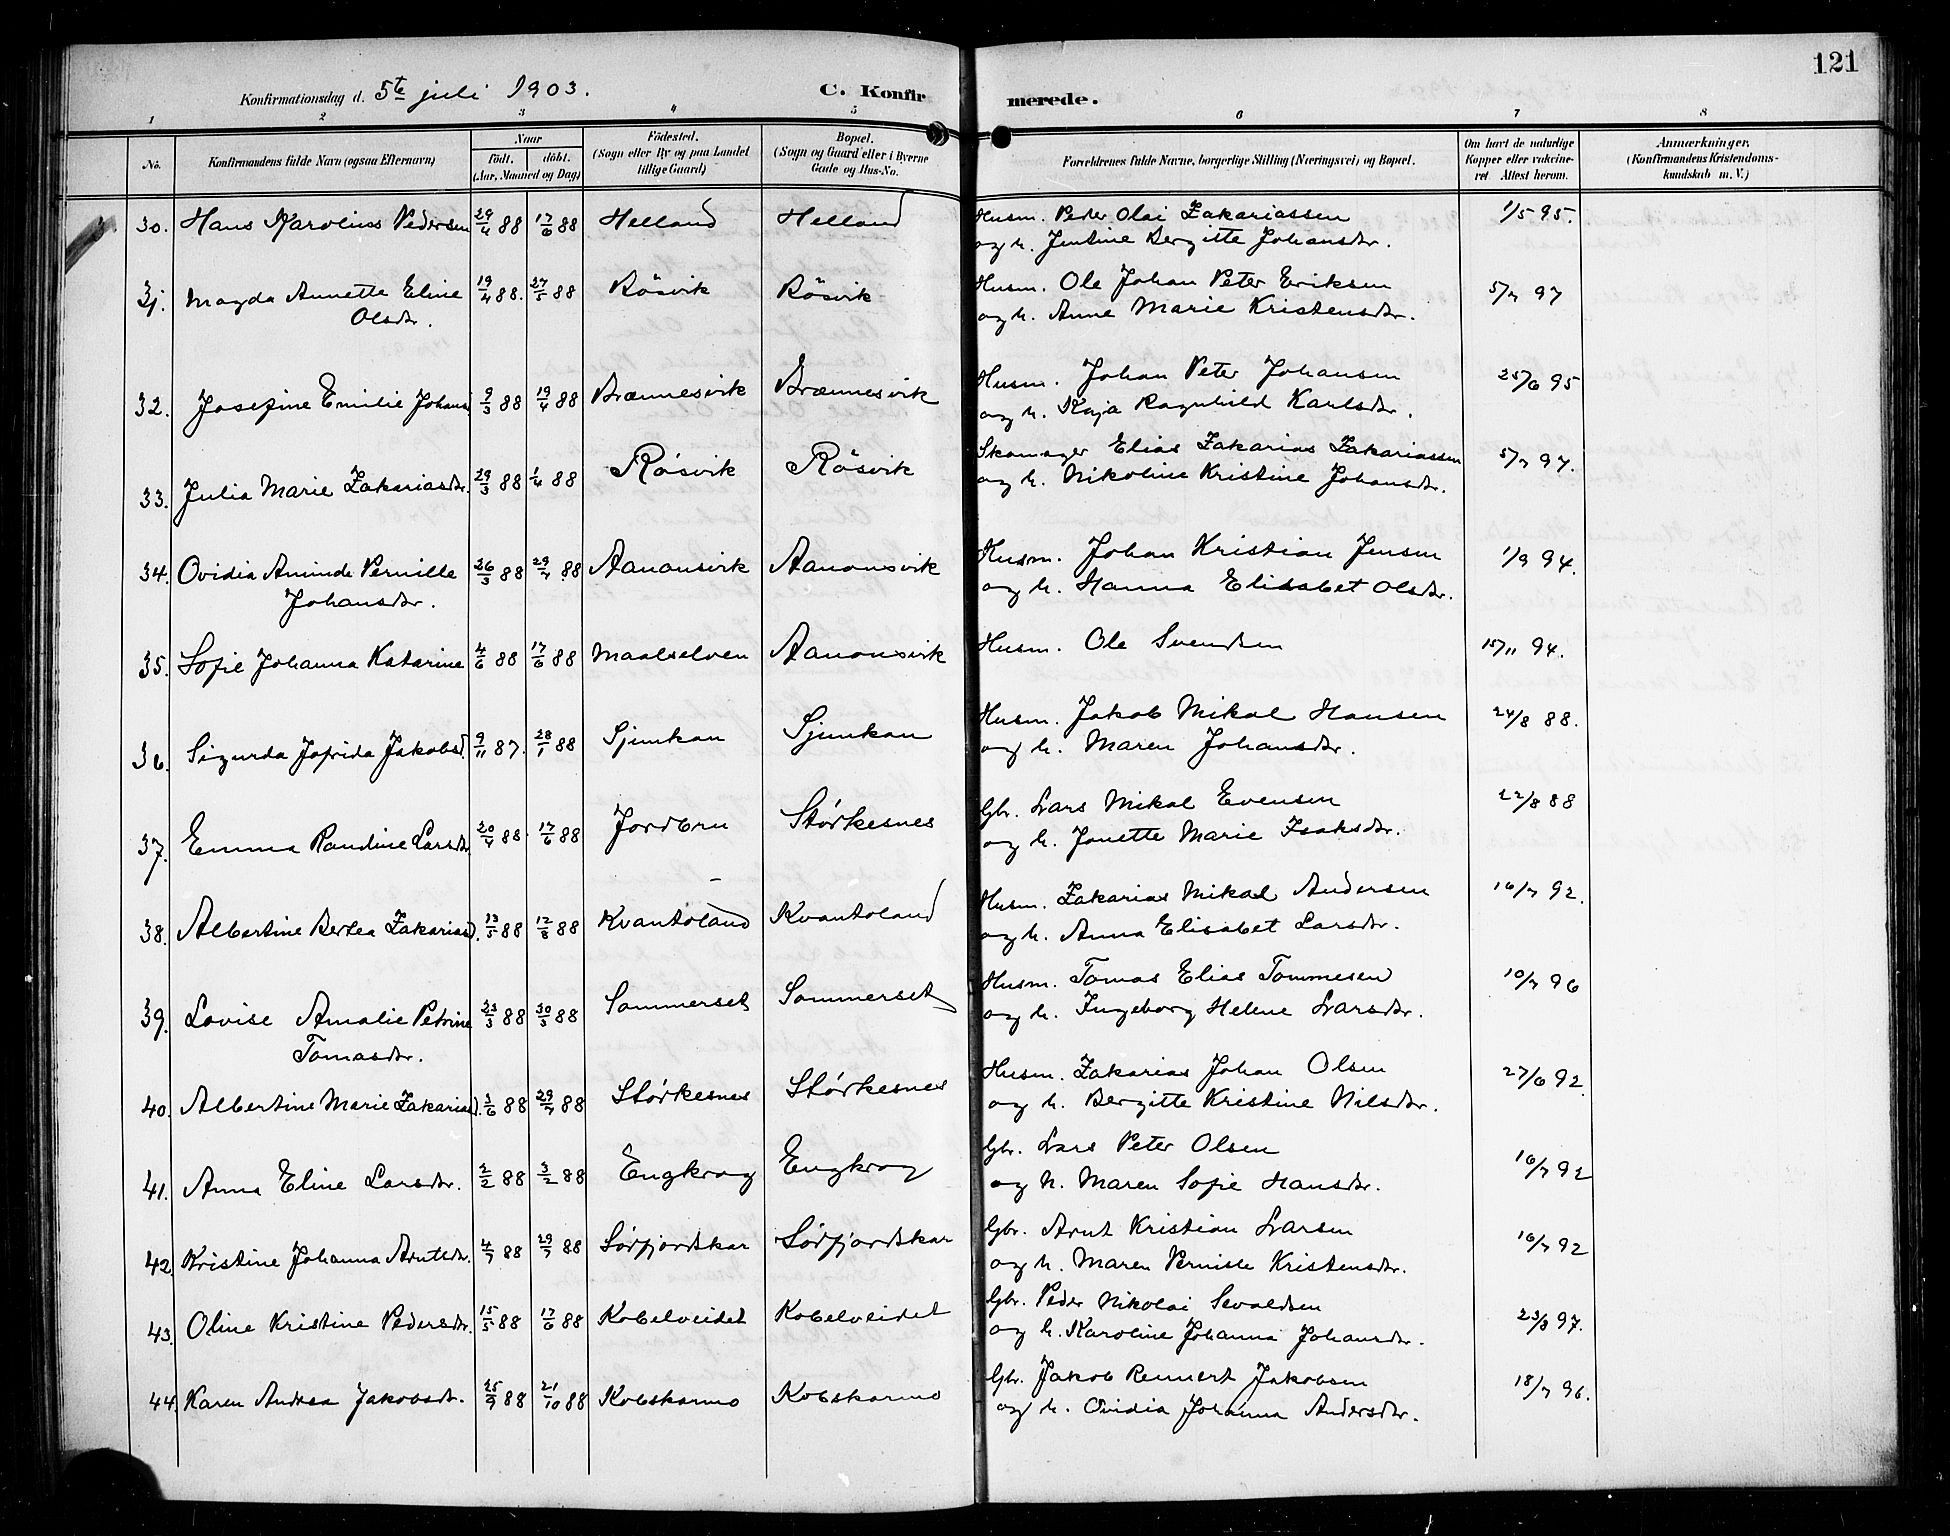 121
Konfirmationsdag d. 5te juli 1903. C. Konfirmerede.
1 2 3 4 5 6 7 8
No. Konfirmandens fulde Navn (ogsaa Efternavn) Naar født. døbt. (Aar, Maaned og Dag) Fødested. (Sogn eller By og paa Landet tillige Gaard) Bopæl. (Sogn og Gaard eller i Byerne Gade og Hus-No. Forældrenes fulde Navne, borgerlige Stilling (Næringsvei) og Bopæl. Om havt de naturlige Kopper eller vaccineret Attest herom. Anmærkninger. (Konfirmandens Kristendomskundskab m. V.)
30. Hans Karolius Pedersen 29/4 88 17/6 88 Helland Helland Husm. Peder Olai Zakariassen 1/5 95.
og h. Jentine Bergitte Johansdr.
31. Magda Annette Eline 19/4 88. 27/5 88 Røsvik Røsvik Husm. Ole Johan Peter Eriksen 5/7 97
Olsdr. og h. Anne Marie Kristensdr.
32. Josefine Emilie Johans 9/3 88 19/4 88 Brænnesvik Brænnesvik Husm. Johan Peter Johansen 25/6 95
og h. Kaja Ragnhild Karlsdr.
33. Julia Marie Zakariasdr. 29/3 88 1/4 88 Røsvik Røsvik Skomager Elias Zakarias Zakariassen 5/7 97.
og h. Nikoline Kristine Johansdr.
34. Ovidia Aminda Pernille 26/3 88 29/7 88 Aanonsvik Aanonsvik Husm. Johan Kristian Jensen 1/9 94.
Johansdr. og h. Hanna Elisabet Olsdr.
35. Sofie Johanna Katarine 4/6 88 17/6 88 Maalselven Aanonsvik Husm. Ole Svendsen 15/11 94.
36. Sigurda Jofrida Jakobsd. 9/11 87. 28/1 88 Sjunkan Sjunkan Husm. Jakob Mikal Hansen 24/8 88.
og h. Maren Johansdr.
37. Emma Randine Larsdr. 20/4 88. 17/6 88 Jordbru Størkesnes Gbr. Lars Mikal Evensen 22/8 88
og h. Jonette Marie Isaksdr.
38. Albertine Bertea Zakariasd. 13/5 88 12/8 88 Kvantoland Kvantoland Husm. Zakarias Mikal Andersen 16/7 92.
og h. Anna Elisabet Larsdr.
39. Lovise Amalie Petrine 23/3 88 30/3 88 Sommerset Sommerset Husm. Tomas Elias Tommesen 10/7 96
Tomasdr. og h. Ingeborg Helene Larsdr.
40. Albertine Marie Zakariasd. 3/6 88 29/7 88 Størkesnes Størkesnes Husm. Zakarias Johan Olsen 27/6 92.
og h. Bergitte Kristine Nilsdr.
41. Anna Eline Larsdr. 2/2 88 3/2 88 Engkrog Engkrog Gbr. Lars Peter Olsen 16/7 92
og h. Maren Sofie Hansdr.
42. Kristine Johanna Arntdr. 4/7 88 29/7 88 Sørfjordskar Sørfjordskar Gbr. Arnt Kristian Larsen 16/7 92
og h. Maren Pernille Kristensdr.
43. Oline Kristine Pedersdr. 15/5 88 17/6 88 Kobelveidet Kobelveidet Gbr. Peder Nikolai Sevaldsen 23/8 97.
og h. Karoline Johanna Johansdr.
44. Karen Andrea Jakobsdr. 25/9 88 21/10 88 Kobskarmo Kobskarmo Gbr. Jakob Rennert Jakobsen 18/7 96.
og h. Ovidia Johanna Andersdr.